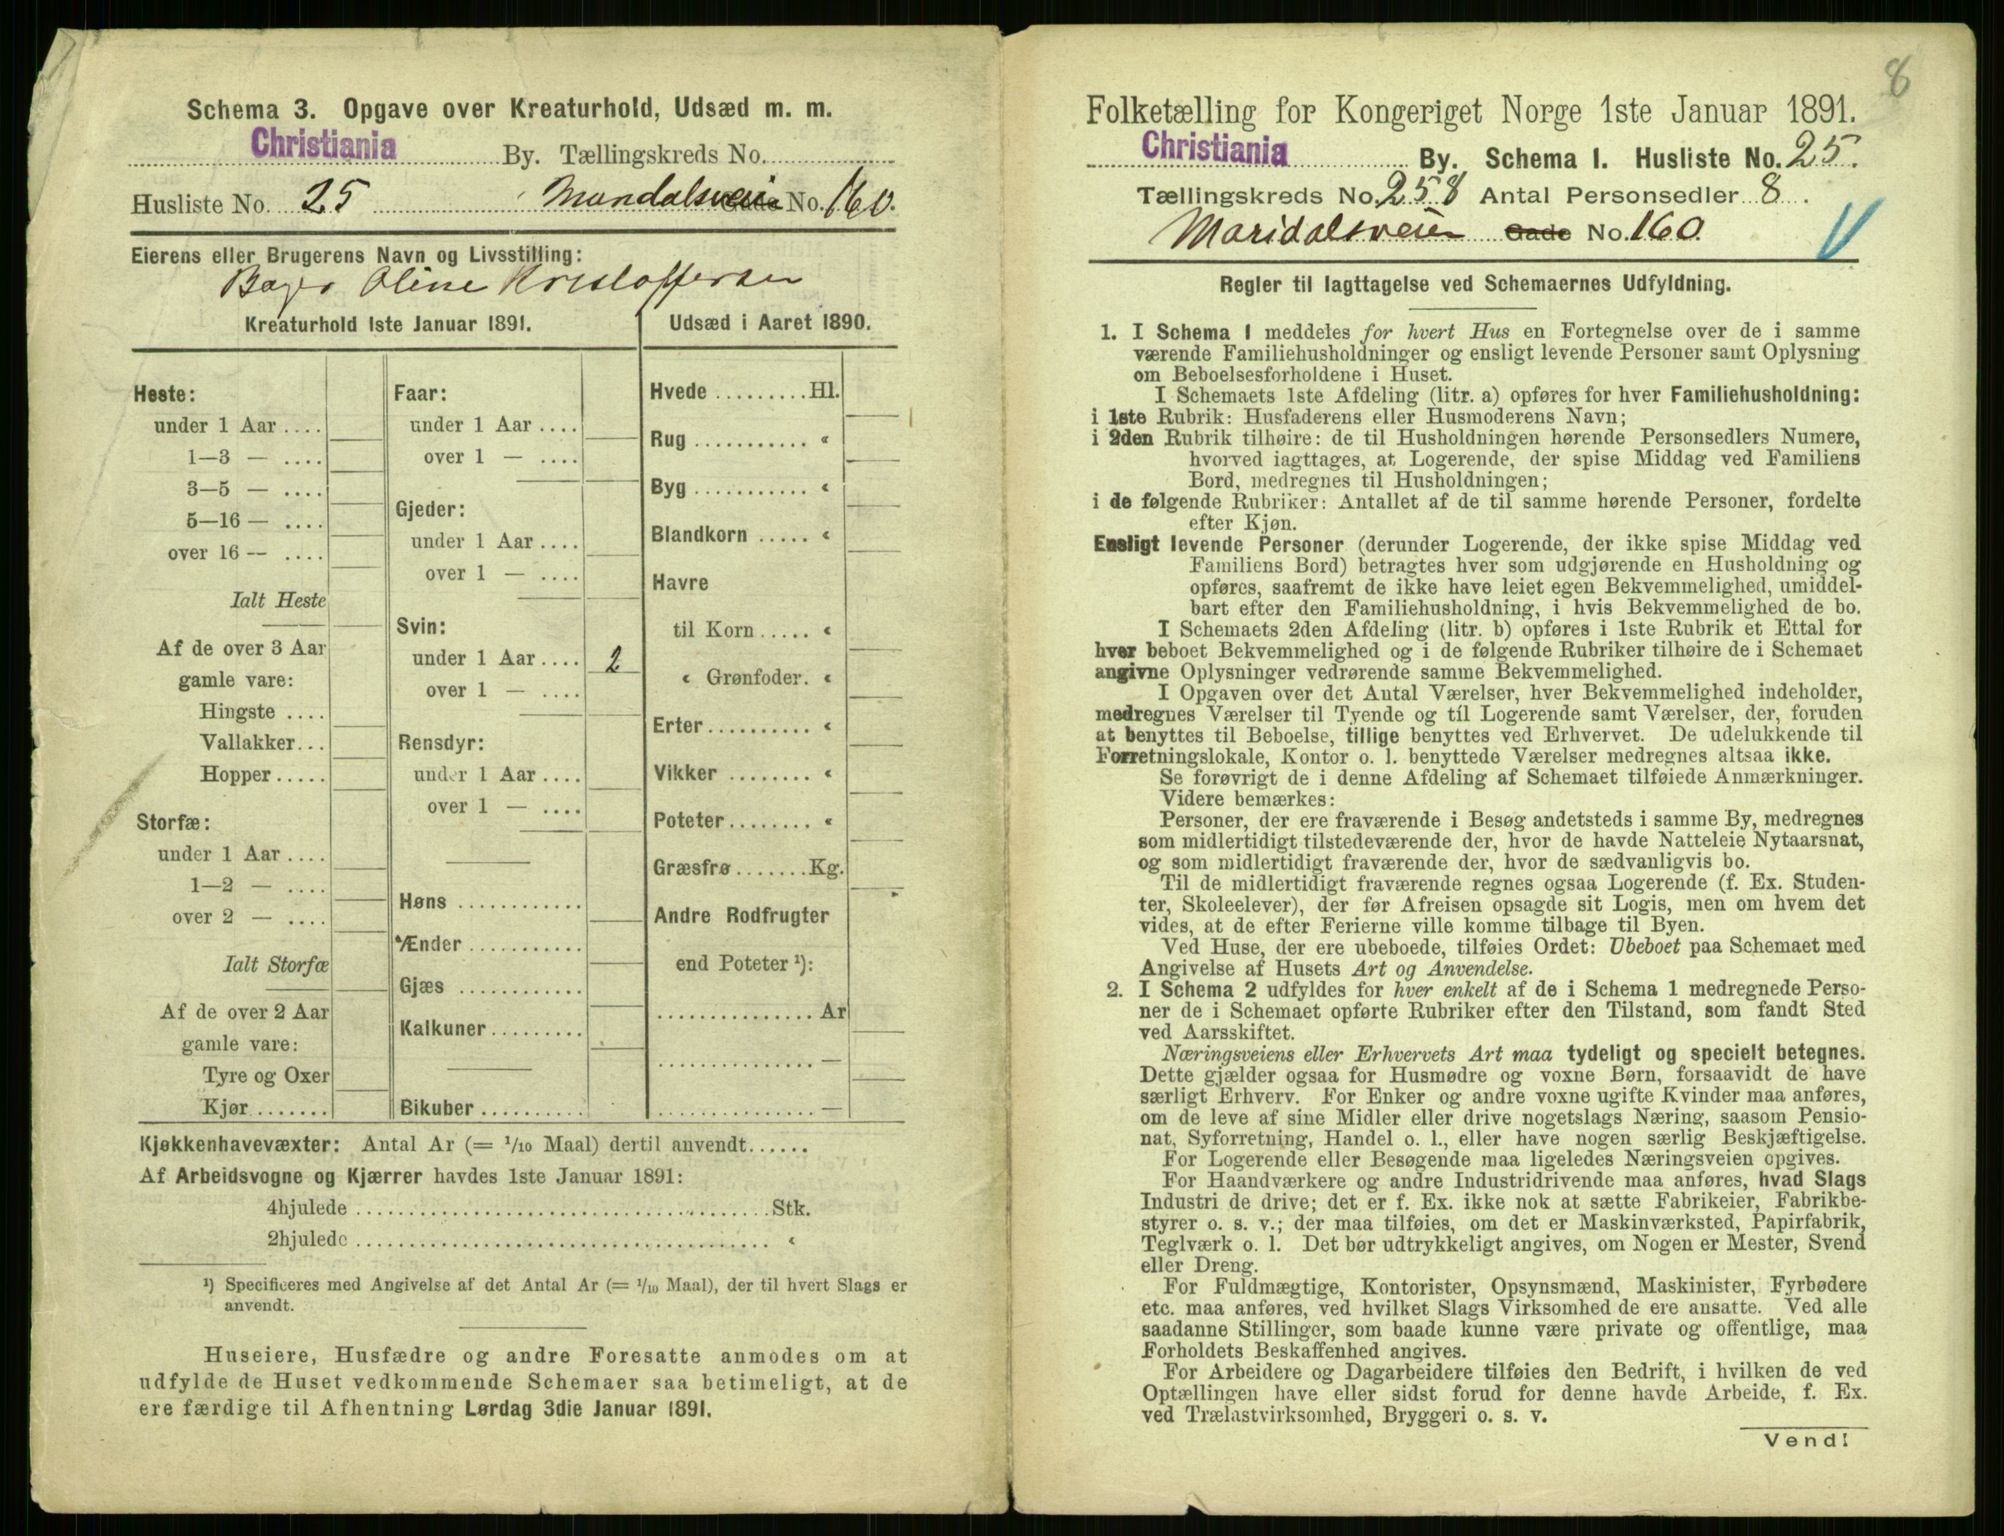 Schema 3. Opgave over Kreaturhold, Udsæd m. m.
Christiania By. Tællingskreds No.
Husliste No. 25 Mondalsveien Gade No. 160.
Eierens eller Brugerens Navn og Livsstilling:
Bager Oline Kristoffersen
Kreaturhold 1ste Januar 1891.
Heste:
under 1 Aar ....
1—3 — ....
3—5 — ....
5—16 — ....
over 16 — ....
Ialt Heste
Af de over 3 Aar
gamle vare:
Hingste ....
Vallakker...
Hopper.....
Storfæ:
under 1 Aar ....
1—2 — ....
over 2 — ....
Ialt Storfæ
Af de over 2 Aar
gamle vare:
Tyre og Oxer
Kjør.......
Faar:
under 1 Aar ....
over 1 — ....
Gjeder:
under 1 Aar ....
over 1 — ....
Svin:
under 1 Aar .... 2
over 1 — ....
Rensdyr:
under 1 Aar ....
over 1 — ....
Høns ............
Ænder ...........
Gjæs ............
Kalkuner.........
Bikuber ..........
Udsæd i Aaret 1890.
Hvede .........Hl.
Rug ........... «
Byg ........... «
Blandkorn ..... «
Havre
til Korn ..... «
« Grønfoder. «
Erter .......... «
Vikker ........ «
Poteter........ «
Græsfrø .......Kg.
Andre Rodfrugter
end Poteter ¹):
............... Ar
............... —
............... —
Kjøkkenhavevæxter: Antal Ar (= 1/10 Maal) dertil anvendt......
Af Arbeidsvogne og Kjærrer havdes 1ste Januar 1891:
4hjulede ........................................Stk.
2hjulede ........................................ «
¹) Specificeres med Angivelse af det Antal Ar (= 1/10 Maal), der til hvert Slags er
anvendt.
Huseiere, Husfædre og andre Foresatte anmodes om at
udfylde de Huset vedkommende Schemaer saa betimeligt, at de
ere færdige til Afhentning Lørdag 3die Januar 1891.
8
Folketælling for Kongeriget Norge 1ste Januar 1891.
Christiania By. Schema 1. Husliste No. 25.
Tællingskreds No. 258 Antal Personsedler 8.
Maridalsveien Gade No. 160.
Regler til Iagttagelse ved Schemaernes Udfyldning.
1. I Schema 1 meddeles for hvert Hus en Fortegnelse over de i samme
værende Familiehusholdninger og ensligt levende Personer samt Oplysning
om Beboelsesforholdene i Huset.
I Schemaets 1ste Afdeling (litr. a) opføres for hver Familiehusholdning:
i 1ste Rubrik: Husfaderens eller Husmoderens Navn;
i 2den Rubrik tilhøire: de til Husholdningen hørende Personsedlers Numere,
hvorved iagttages, at Logerende, der spise Middag ved Familiens
Bord, medregnes til Husholdningen;
i de følgende Rubriker: Antallet af de til samme hørende Personer, fordelte
efter Kjøn.
Ensligt levende Personer (derunder Logerende, der ikke spise Middag ved
Familiens Bord) betragtes hver som udgjørende en Husholdning og
opføres, saafremt de ikke have leiet egen Bekvemmelighed, umiddel-
bart efter den Familiehusholdning, i hvis Bekvemmelighed de bo.
I Schemaets 2den Afdeling (litr. b) opføres i 1ste Rubrik et Ettal for
hver beboet Bekvemmelighed og i de følgende Rubriker tilhøire de i Schemaet
angivne Oplysninger vedrørende samme Bekvemmelighed.
I Opgaven over det Antal Værelser, hver Bekvemmelighed indeholder,
medregnes Værelser til Tyende og til Logerende samt Værelser, der, foruden
at benyttes til Beboelse, tillige benyttes ved Erhvervet. De udelukkende til
Forretningslokale, Kontor o. l. benyttede Værelser medregnes altsaa ikke.
Se forøvrigt de i denne Afdeling af Schemaet tilføiede Anmærkninger.
Videre bemærkes:
Personer, der ere fraværende i Besøg andetsteds i samme By, medregnes
som midlertidigt tilstedeværende der, hvor de havde Natteleie Nytaarsnat,
og som midlertidigt fraværende der, hvor de sædvanligvis bo.
Til de midlertidigt fraværende regnes ogsaa Logerende (f. Ex. Studen-
ter, Skoleelever), der før Afreisen opsagde sit Logis, men om hvem det
vides, at de efter Ferierne ville komme tilbage til Byen.
Ved Huse, der ere ubeboede, tilføies Ordet: Ubeboet paa Schemaet med
Angivelse af Husets Art og Anvendelse.
2. I Schema 2 udfyldes for hver enkelt af de i Schema 1 medregnede Perso-
ner de i Schemaet opførte Rubriker efter den Tilstand, som fandt Sted
ved Aarsskiftet.
Næringsveiens eller Erhvervets Art maa tydeligt og specielt betegnes.
Dette gjælder ogsaa for Husmødre og voxne Børn, forsaavidt de have
særligt Erhverv. For Enker og andre voxne ugifte Kvinder maa anføres,
om de leve af sine Midler eller drive nogetslags Næring, saasom Pensio-
nat, Syforretning, Handel o. l., eller have nogen særlig Beskjæftigelse.
For Logerende eller Besøgende maa ligeledes Næringsveien opgives.
For Haandværkere og andre Industridrivende maa anføres, hvad Slags
Industri de drive; det er f. Ex. ikke nok at sætte Fabrikeier, Fabrikbe-
styrer o. s. v.; der maa tilføies, om det er Maskinværksted, Papirfabrik,
Teglværk o. l. Det bør udtrykkeligt angives, om Nogen er Mester, Svend
eller Dreng.
For Fuldmægtige, Kontorister, Opsynsmænd, Maskinister, Fyrbødere
etc. maa anføres, ved hvilket Slags Virksomhed de ere ansatte. Ved alle
saadanne Stillinger, som baade kunne være private og offentlige, maa
Forholdets Beskaffenhed angives.
For Arbeidere og Dagarbeidere tilføies den Bedrift, i hvilken de ved
Optællingen have eller sidst forud for denne havde Arbeide, f. Ex.
ved Trælastvirksomhed, Bryggeri o. s. v.
Vend!